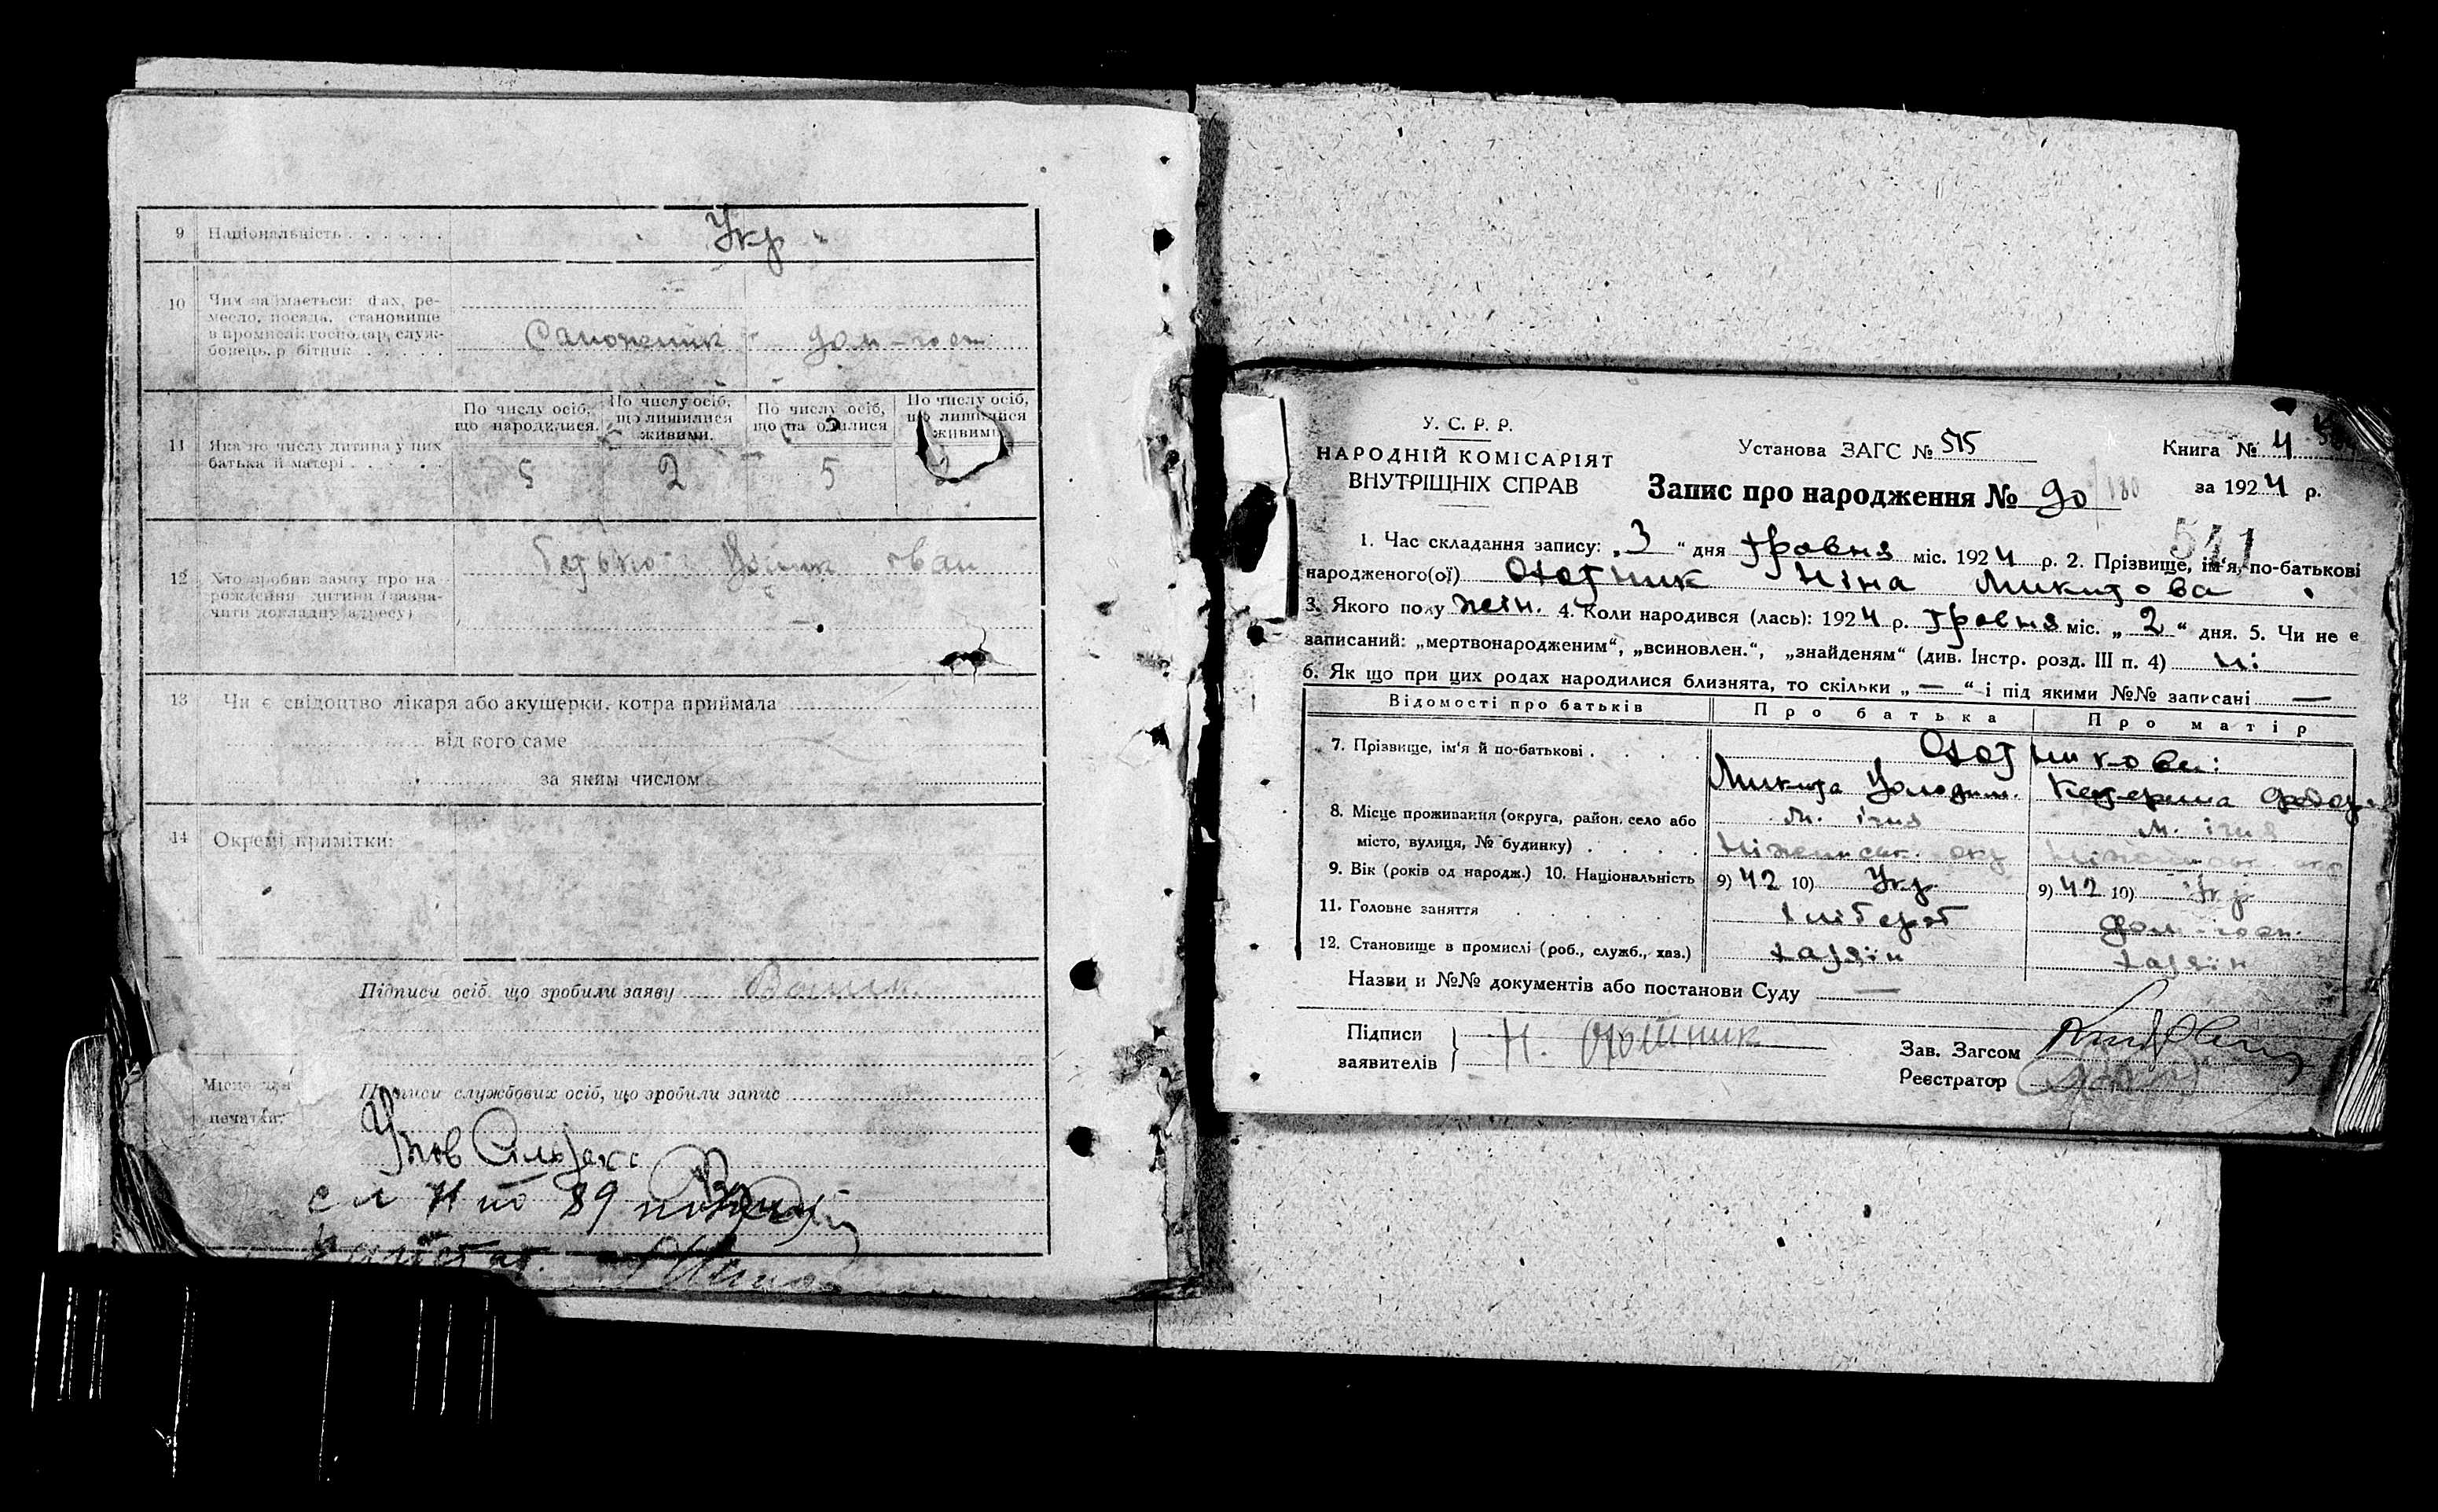 9 Національність . . . . . . Укр
10 Чим займається: фах, ре-
месло, посада, становище
в промислі: господар, служ-
бонець, робітник . . . . . Сапожник дом-госп
По числу осіб, що народилися. По числу осіб, що лишилися живими. По числу осіб, що на одилися По числу осіб, що лишилися живими
11 Яка по числу дитина у них
батька й матері . . . . . 5 2 5 2
12 Хто зробив заяву про на-
рождення дитини (зазна-
чити докладну адресу) батько
13 Чи є свідоцтво лікаря або акушерки, котра приймала
від кого саме
за яким числом
14 Окремі примітки:
Підписи осіб, що зробили заяву
Місце для
печатки.
Підписи службових осіб, що зробили запис
У. С. Р. Р.
НАРОДНІЙ КОМІСАРІЯТ
ВНУТРІШНІХ СПРАВ
Установа ЗАГС № 515
Книга № 4
Запис про народження № 90 180
за 1924 р.
541
1. Час складання запису: „3“ дня травня міс. 1924 р. 2. Прізвище, ім'я, по-батькові
народженого(ої) Охотник Ніна Микитова
3. Якого полу жін. 4. Коли народився (лась): 1924 р. травня міс. „2“ дня. 5. Чи не є
записаний: „мертвонародженим“, „всиновлен.“, „знайденям“ (див. Інстр. розд. III п. 4) ні
6. Як що при цих родах народилися близнята, то скільки „—“ і під якими №№ записані —
Відомості про батьків Про батька Про матір
7. Прізвище, ім'я й по-батькові . . . . Охотникови:
Микита Володим. Катерина Федор.
8. Місце проживання (округа, район, село або м. Ічня м. Ічня
місто, вулиця, № будинку) . . . . Ніженськ. окр Ніженськ. окр
9. Вік (років од народж.) 10. Національність 9) 42 10) Укр. 9) 42 10) Укр
11. Головне заняття . . . . хлібороб дом-госп.
12. Становище в промислі (роб., служб., хаз.) хазяїн хазяїн
Назви и №№ документів або постанови Суду —
Підписи
заявителів } Н. Охотник
Зав. Загсом
Реєстратор